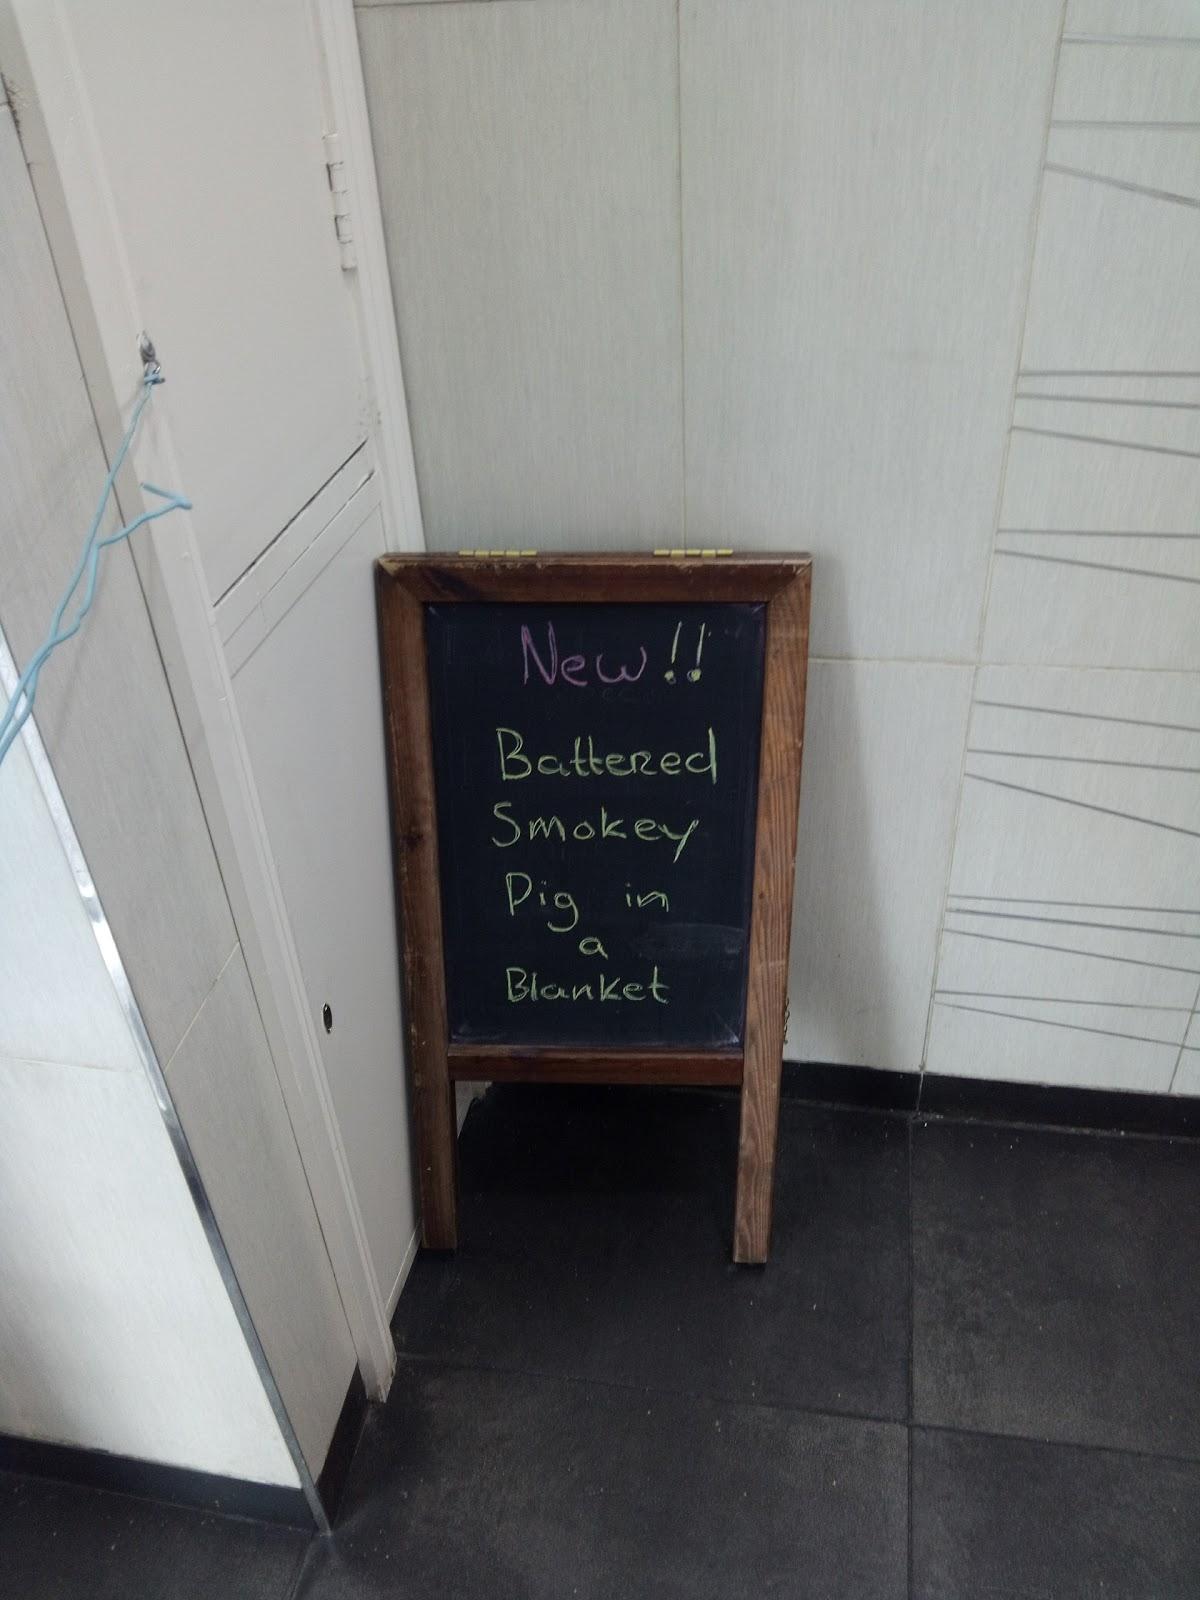 New!!
Battered
Smokey
Pig in
a
Blanket